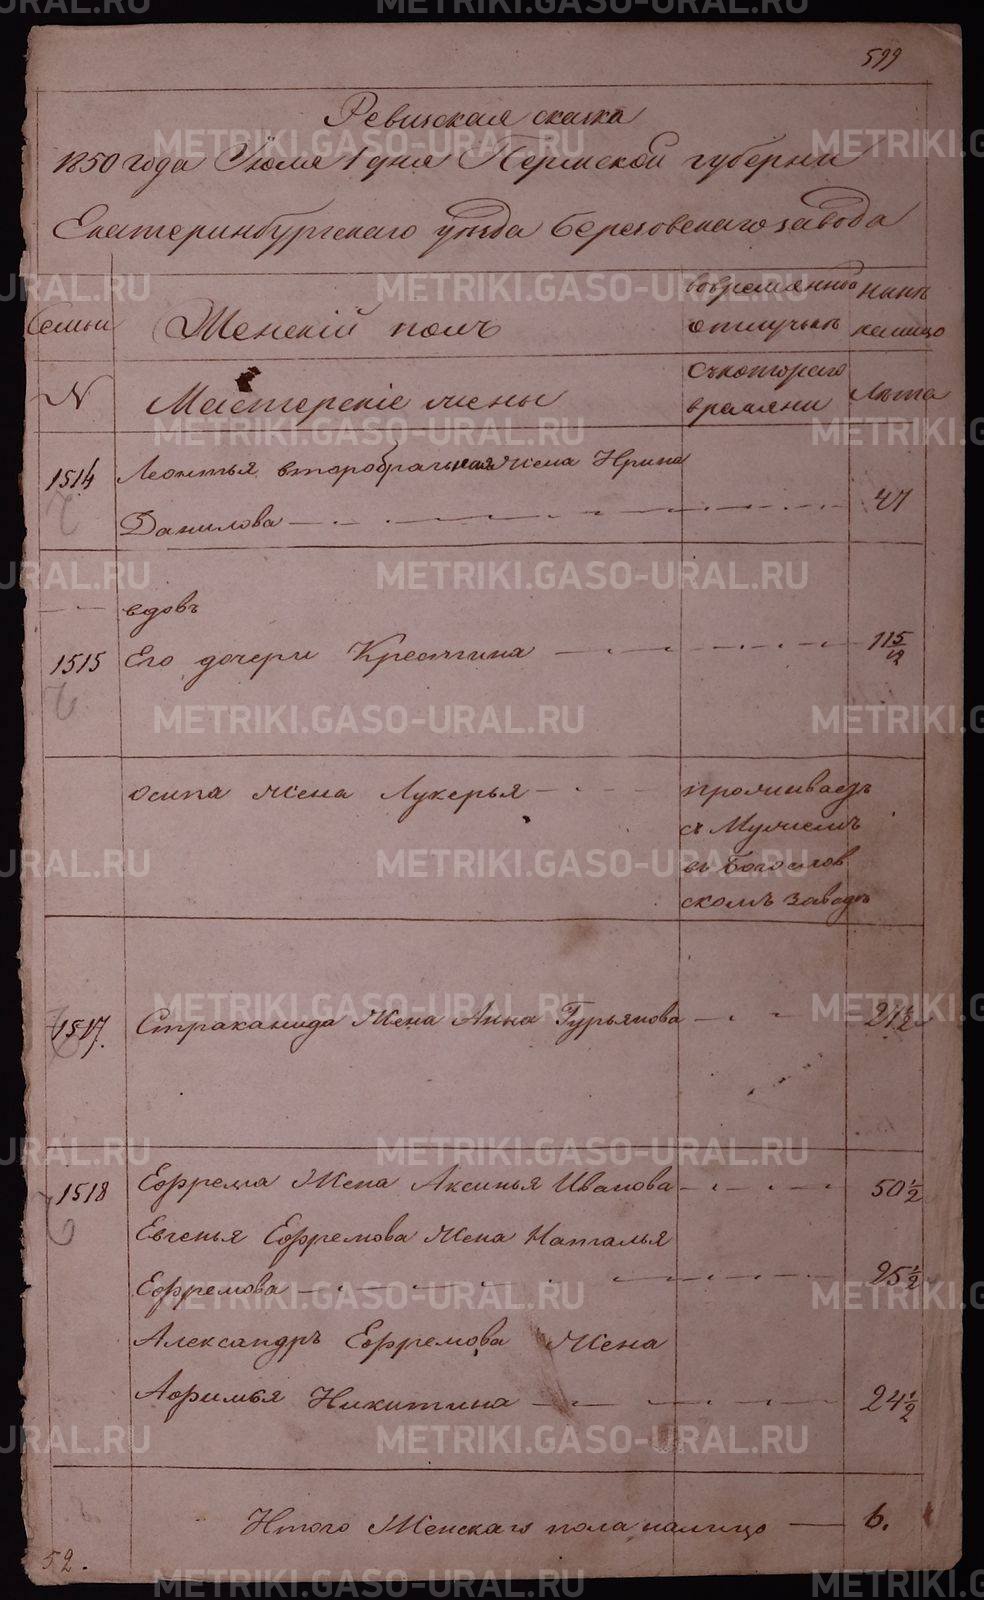 599
Ревизская сказка
1850 года Июля 1 дня Пермской губернии
Екатеринбургскаго уѣзда Березовскаго завода
Семьи
Женскій полъ
во временной отлучкѣ
нынѣ на лицо
N
Мастерскіе жены
съ котораго времяни
Лѣта
1514
Леонтья второбрачная жена Ирина
Данилова
47
вдовъ
1515
Его дочери Крестина
11 5/12
Осипа жена Лукерья
проживаетъ
съ Мужемъ
въ Богослов
скомъ заводѣ
1517.
жена Анна Гурьянова
21 1/2
1518
Ефрема Жена Аксинья Иванова
50 1/2
Евгенья Ефремова жена Наталья
Ефремова
25 1/2
Александръ Ефремова Жена
Афимья Никитина
24 1/2
Итого Женскаго пола налицо
6.
52.
METRIKI.GASO-URAL.RU